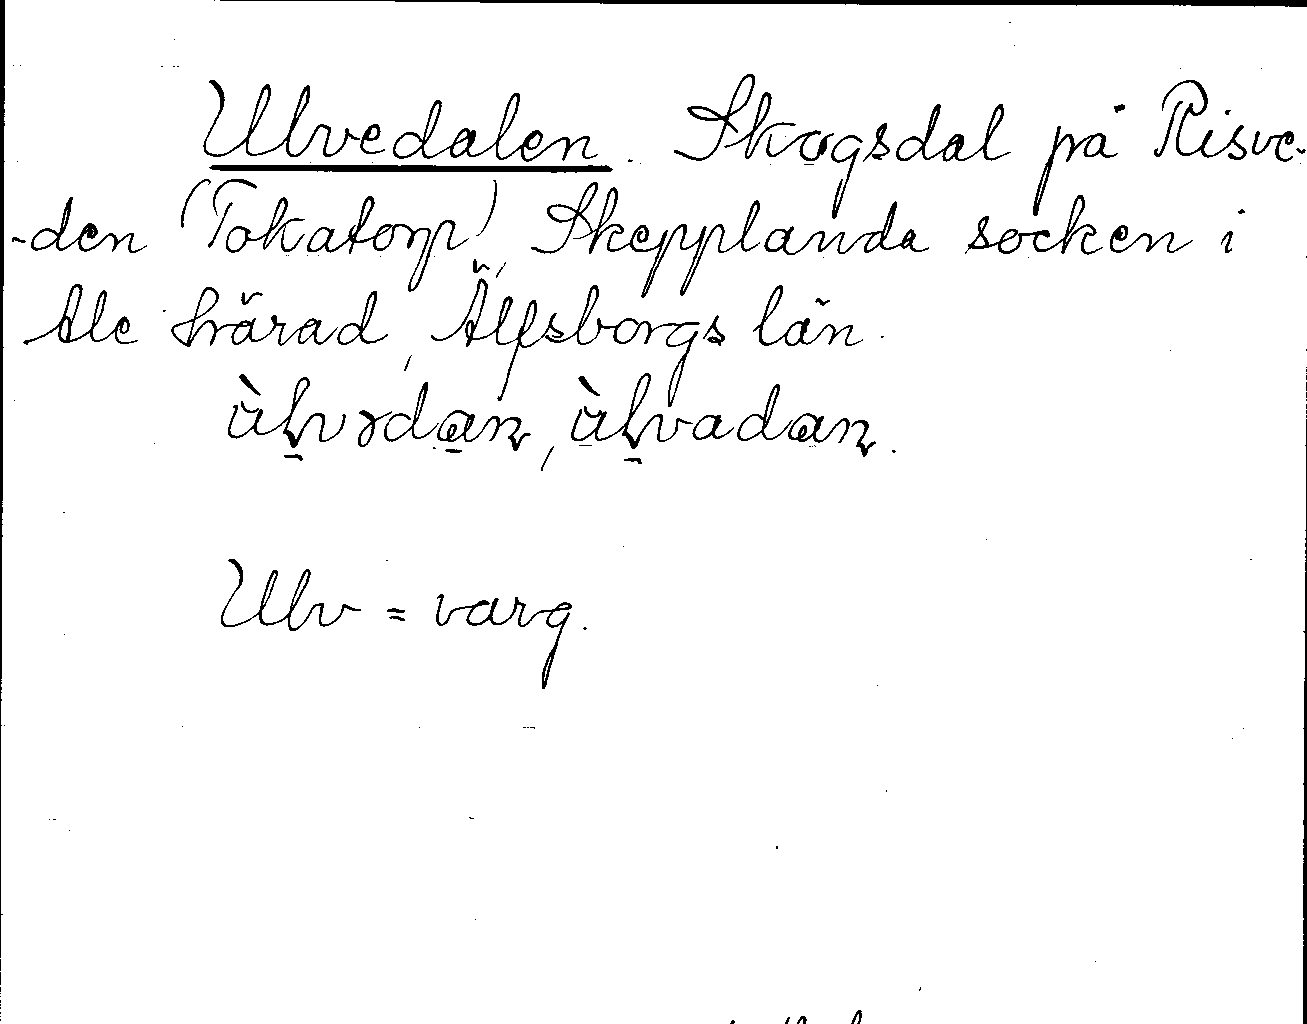 Ulvedalen. Skogsdal på Risve-
-den (Tokatorp), Skepplanda socken i
Ale härad, Älfsborgs län.
ùlvədan, ùlvadan.
Ulv = varg.